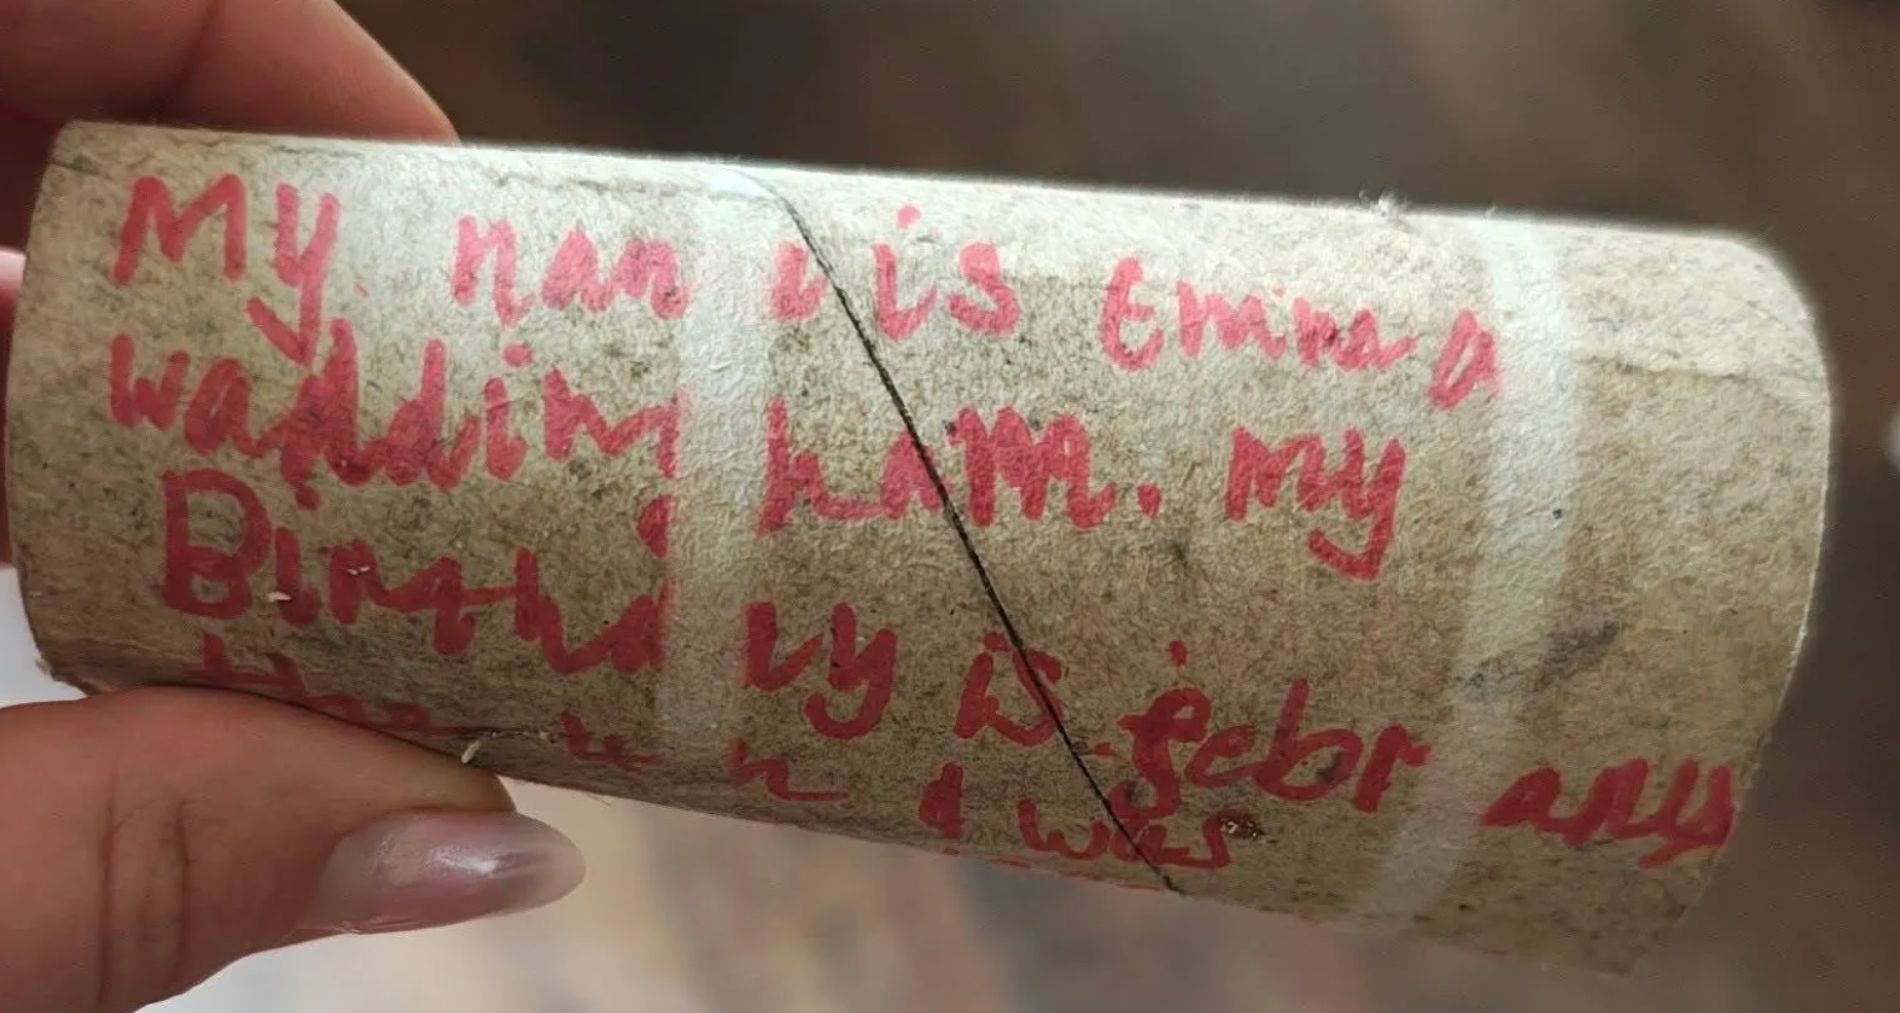 My nan is Emma
waddingham. my
Birthday is febr ary
the h I was